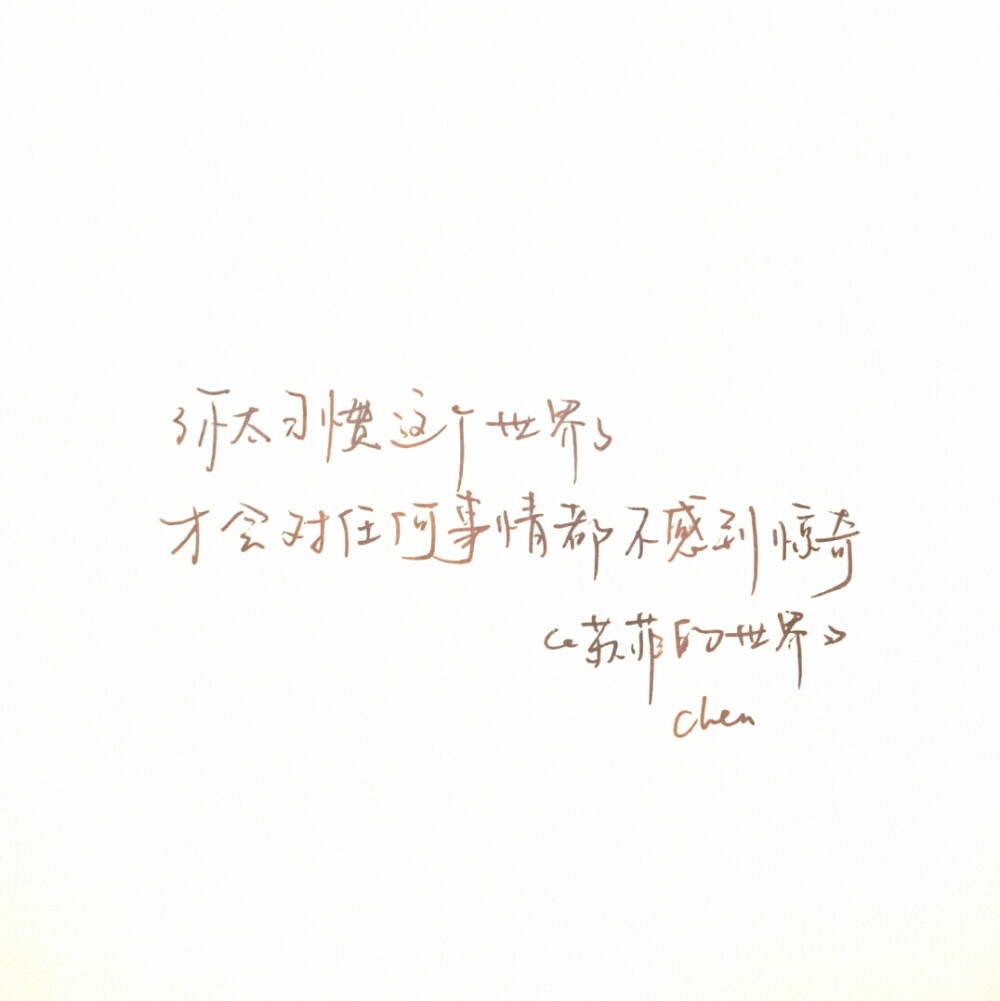 你太习惯这个世界了
才会对任何事情都不感到惊奇
《苏菲的世界》
Chen